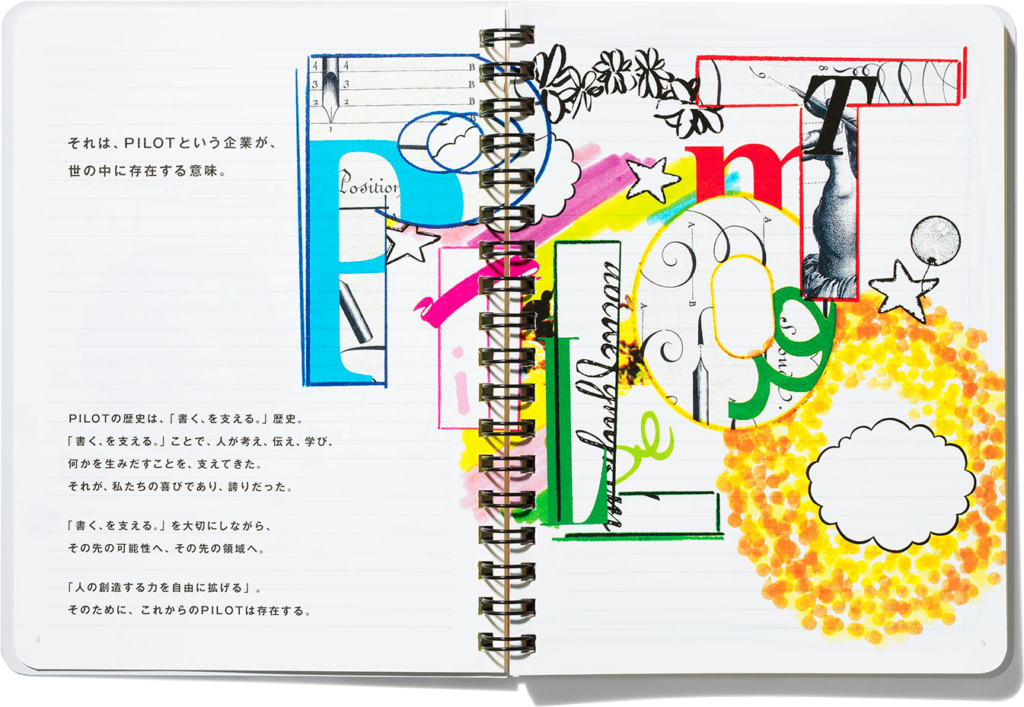 それは、PILOTという企業が、
世の中に存在する意味。
PILOTの歴史は、「書く、を支える。」歴史。
「書く、を支える。」ことで、人が考え、伝え、学び、
何かを生みだすことを、支えてきた。
それが、私たちの喜びであり、誇りだった。
「書く、を支える。」を大切にしながら、
その先の可能性へ、その先の領域へ。
「人の創造する力を自由に拡げる」。
そのために、これからのPILOTは存在する。
4
P
Position
i
L
T
m
be
5